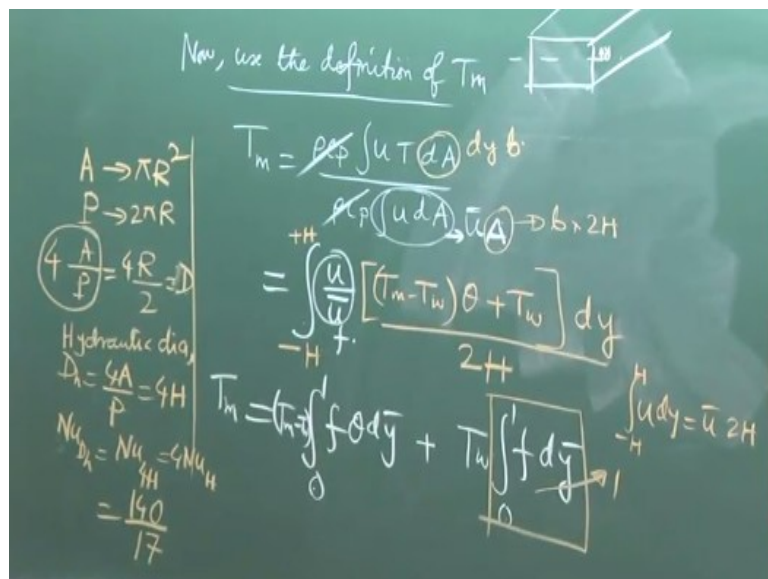 Now, use the definition of Tm
2H
Tm = ρcp ∫ u T dA dy b.
ρcp ∫ u dA → ū A → b × 2H
= ∫_{-H}^{+H} u/ū [(Tm-Tw)θ + Tw] dy
f.
2H
Tm = (Tm-Tw) ∫_0^1 f θ dȳ + Tw ∫_0^1 f dȳ → 1
∫_{-H}^{H} u dy = ū 2H
A → πR²
P → 2πR
4 A/P = 4R/2 = D
Hydraulic dia,
Dh = 4A/P = 4H
Nu_{Dh} = Nu_{4H} = 4Nu_H
= 140/17